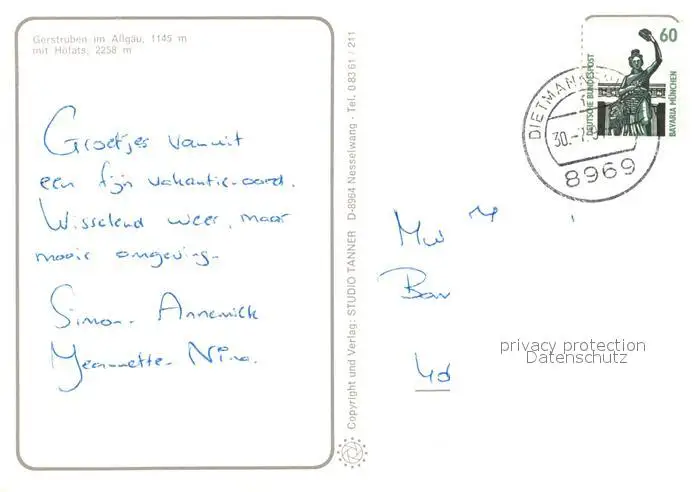 Gerstruben im Allgäu, 1145 m
mit Höfats, 2258 m
Groetjes vanuit
een fijn vakantie-oord.
Wisselend weer, maar
mooie omgeving.
Simon. Annemiek
Jeannette. Nina.
Copyright und Verlag: STUDIO TANNER D-8964 Nesselwang - Tel. 0 83 61 / 211
60
DEUTSCHE BUNDESPOST
BAVARIA MÜNCHEN
30.-7.
8969
Mw
privacy protection
Datenschutz